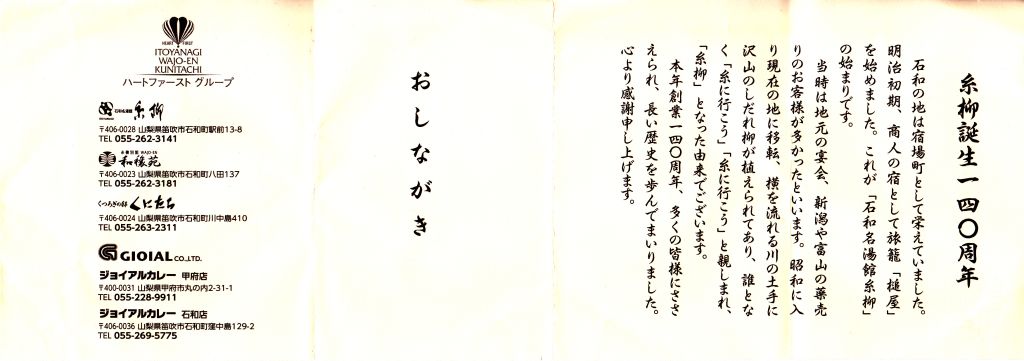 糸柳誕生一四〇周年
石和の地は宿場町として栄えていました。
明治初期、商人の宿として旅籠「槌屋」
を始めました。これが「石和名湯館糸柳」
の始まりです。
当時は地元の宴会、新潟や富山の薬売
りのお客様が多かったといいます。昭和に入
り現在の地に移転、横を流れる川の土手に
沢山のしだれ柳が植えられてあり、誰とな
く「糸に行こう」「糸に行こう」と親しまれ、
「糸柳」となった由来でございます。
本年創業一四〇周年、多くの皆様にささ
えられ、長い歴史を歩んでまいりました。
心より感謝申し上げます。
おしながき
HEART FIRST
ITOYANAGI
WAJO-EN
KUNITACHI
ハートファースト グループ
石和名湯館 糸柳
〒406-0028 山梨県笛吹市石和町駅前13-8
TEL 055-262-3141
WAJO-EN
和穣苑
〒406-0023 山梨県笛吹市石和町八田137
TEL 055-262-3181
くつろぎの邸 くにたち
〒406-0024 山梨県笛吹市石和町川中島410
TEL 055-263-2311
GIOIAL CO.,LTD.
ジョイアルカレー 甲府店
〒400-0031 山梨県甲府市丸の内2-31-1
TEL 055-228-9911
ジョイアルカレー 石和店
〒406-0036 山梨県笛吹市石和町窪中島129-2
TEL 055-269-5775